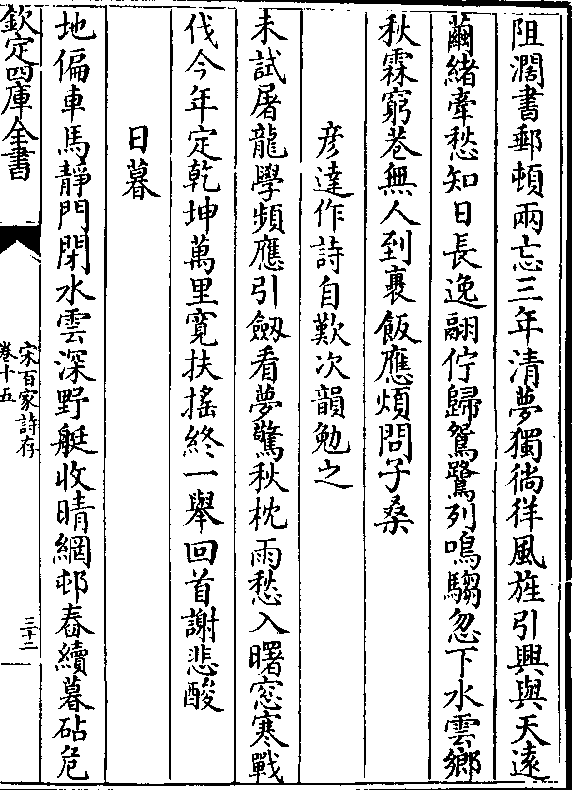 阻濶書郵頓兩忘三年清夢獨徜徉風旌引興與天遠
繭緒牽愁知日長逸翮佇歸鴛鷺列鳴騶忽下水雲鄉
秋霖窮巷無人到裹飯應煩問子桑
彦達作詩自歎次韻勉之
未試屠龍學頻應引劔看夢驚秋枕雨愁入曙窓寒戰
伐今年定乾坤萬里寛扶揺終一舉回首謝悲酸
日暮
地偏車馬靜門閉水雲深野艇收晴網邨舂續暮砧危
欽定四庫全書
宋百家詩存
卷十五
三十二